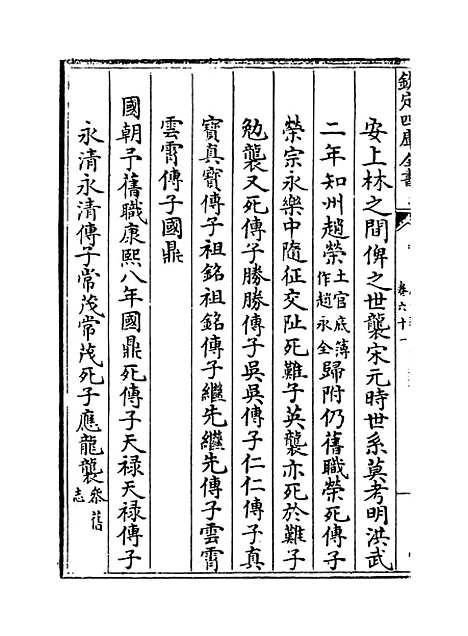 欽定四庫全書
卷六十一
安上林之間俾之世襲宋元時世系莫考明洪武
二年知州趙榮土官底簿作趙永全歸附仍舊職榮死傳子
榮宗永樂中隨征交阯死難子英襲亦死於難子
勉襲又死傳子勝勝傳子吳吳傳子仁仁傳子真
寶真寶傳子祖銘祖銘傳子繼先繼先傳子雲霄
雲霄傳子國鼎
國朝予舊職康熙八年國鼎死傳子天禄天禄傳子
永清永清傳子常茂常茂死子應龍襲叅舊志